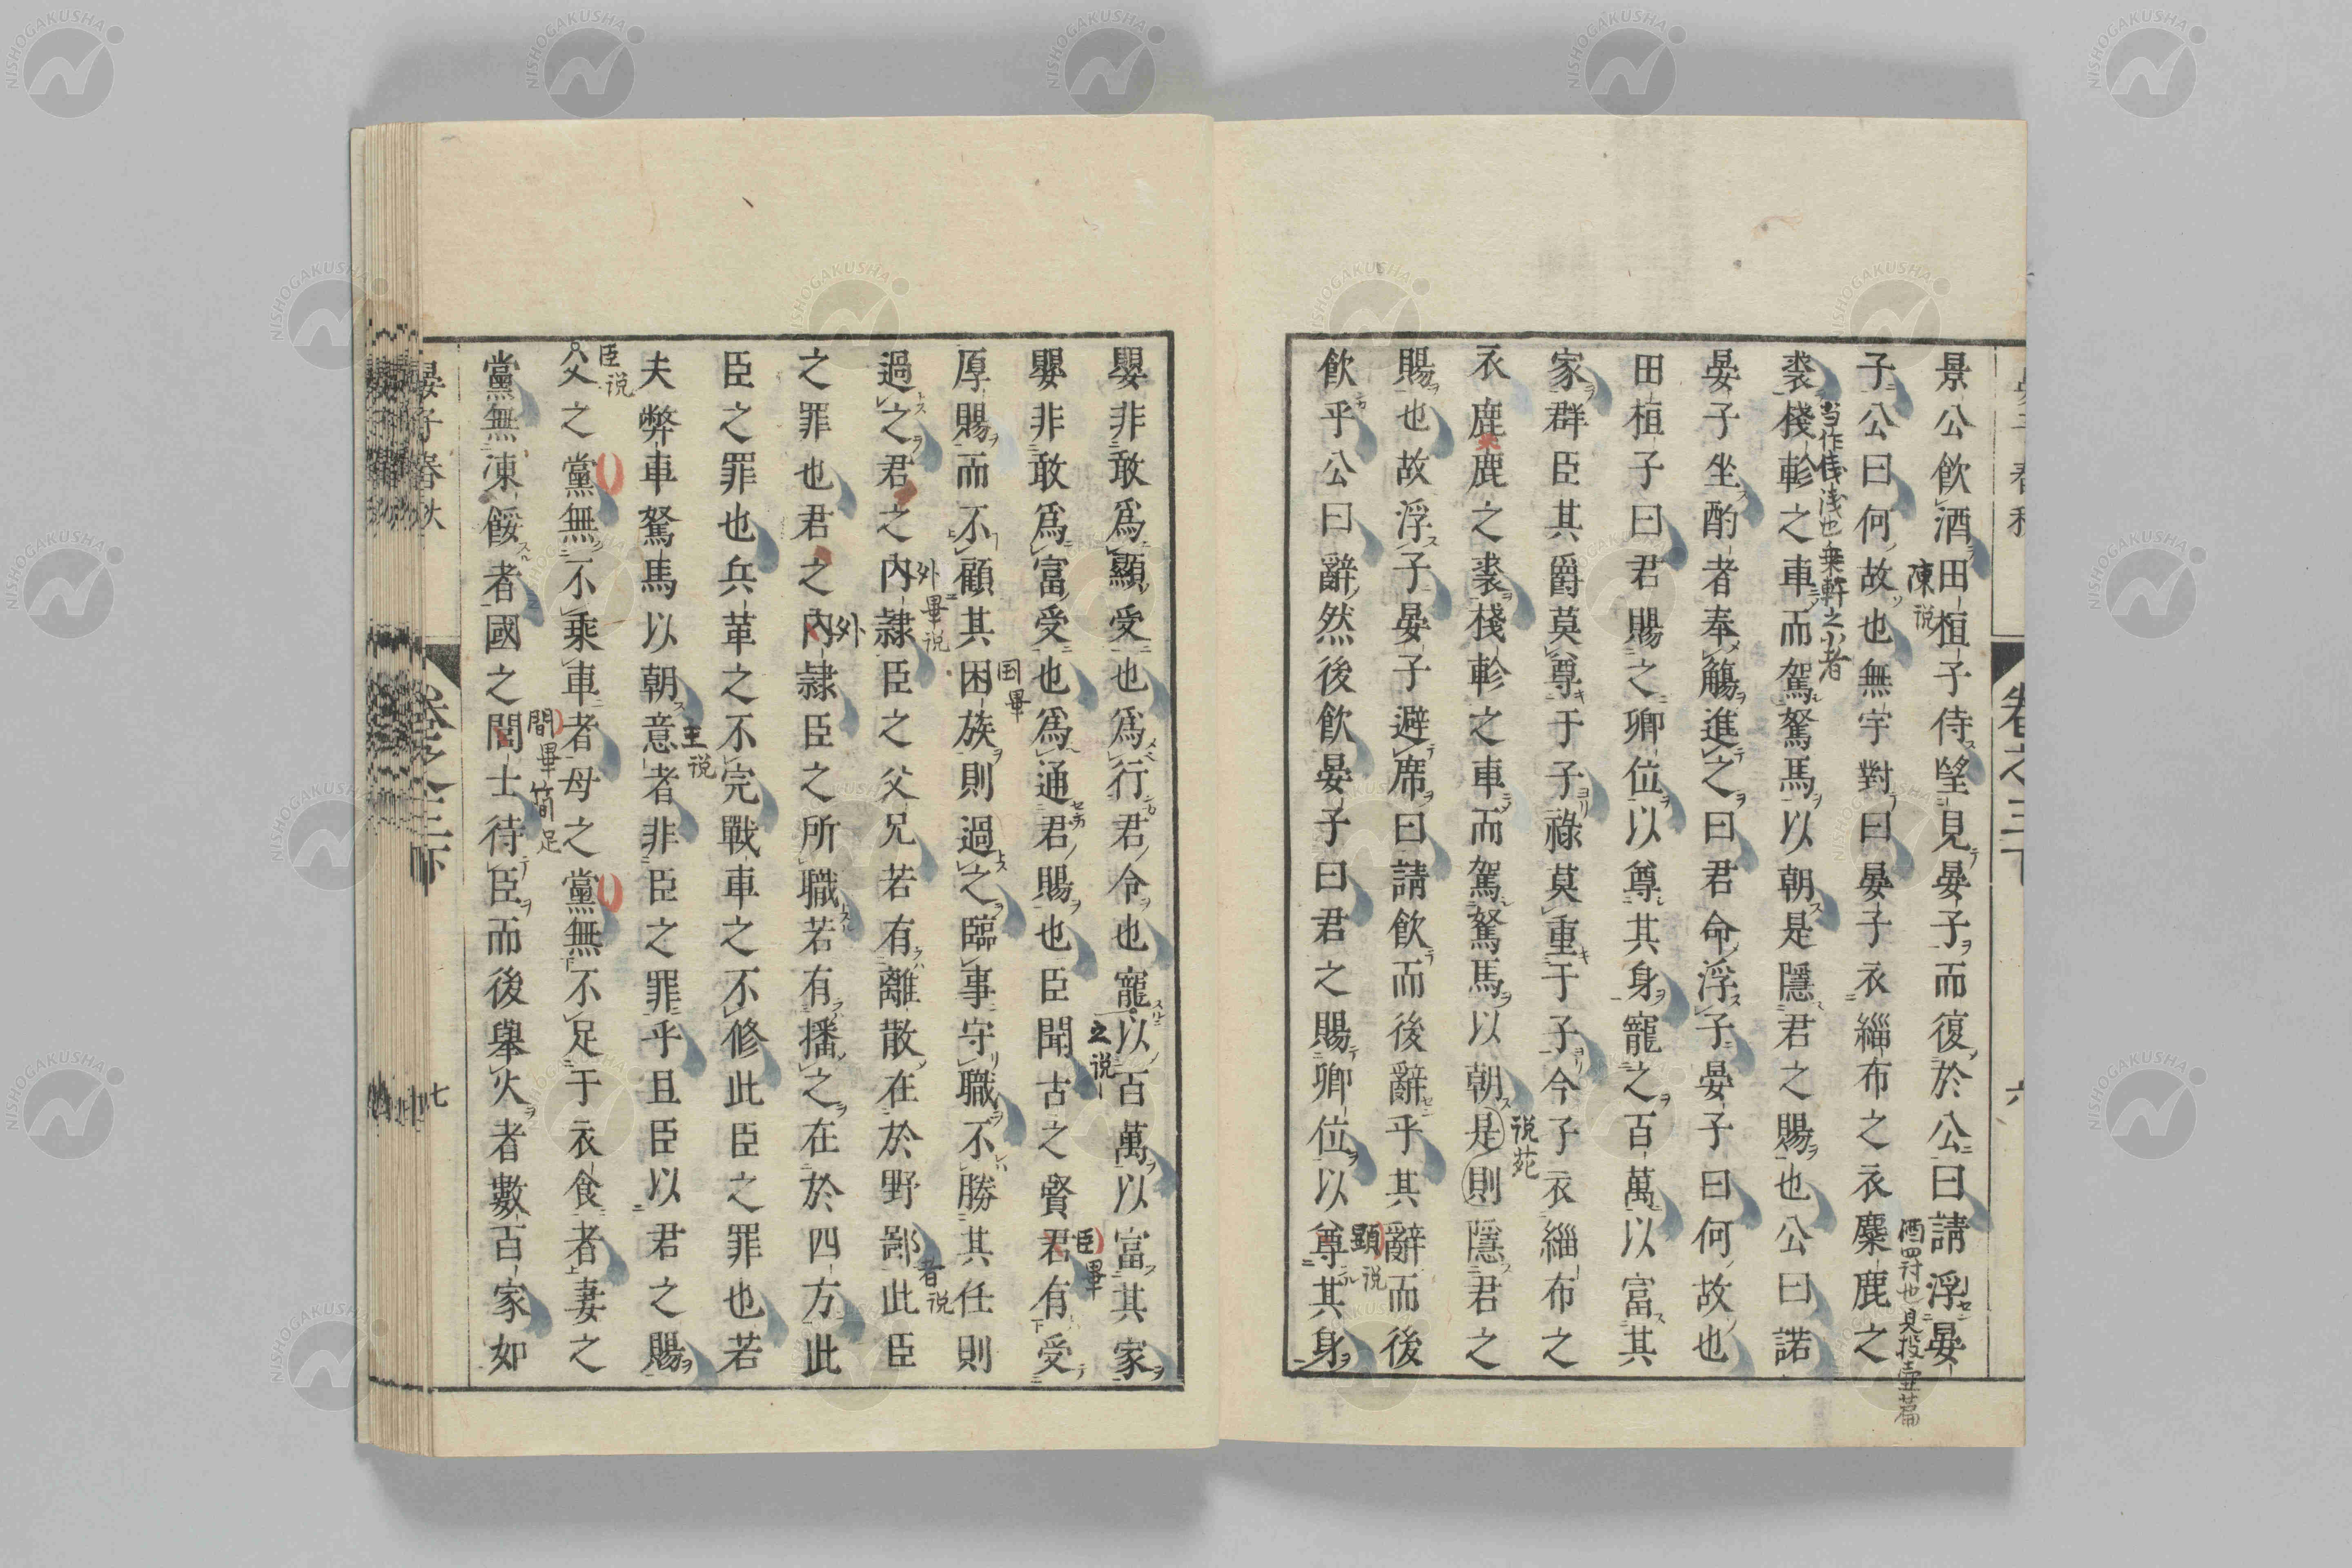 景公飲酒田桓子侍望見晏子而復於公曰請浮晏
子公曰何故也無宇對曰晏子衣緇布之衣麋鹿之
裘棧軫之車而駕駑馬以朝是隱君之賜也公曰諾
晏子坐酌者奉觴進之曰君命浮子晏子曰何故也
田桓子曰君賜之卿位以尊其身寵之百萬以富其
家群臣其爵莫尊于子祿莫重于子今子衣緇布之
衣鹿鹿之裘棧軫之車而駕駑馬以朝是則隱君之
賜也故浮子晏子避席曰請飲而後辭乎其辭而後
飲乎公曰辭然後飲晏子曰君之賜卿位以尊其身
嬰非敢爲顯受也爲行君令也寵以百萬以富其家
嬰非敢爲富受也爲通君賜也臣聞古之賢君有受
厚賜而不顧其困族則過之臨事守職不勝其任則
過之君之內隷臣之父兄若有離散在於野鄙此臣
之罪也君之內隷臣之所職若有播之在於四方此
臣之罪也兵革之不完戰車之不修此臣之罪也若
夫弊車駑馬以朝意者非臣之罪乎且臣以君之賜
父之黨無不乘車者母之黨無不足于衣食者妻之
黨無凍餒者國之閒士待臣而後舉火者數百家如
晏子春秋
卷之三下
七
卷之三下
六
陳説
当作俴浅也乗軒之小者
酒罰也見投壺篇
説苑
顕説
之説
臣畢
国畢
外畢説
者説
外
主説
臣説
間畢
簡足
NISHOGAKUSHA